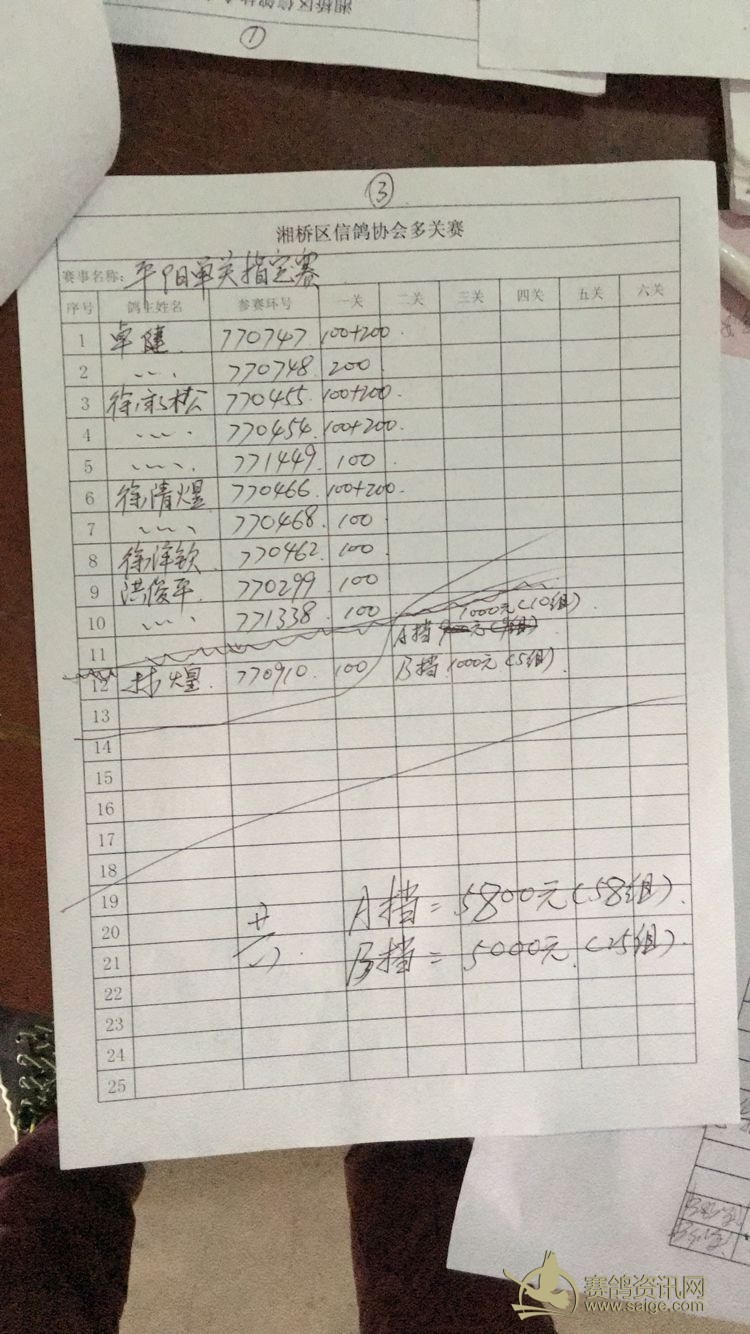 ①
③
湘桥区信鸽协会多关赛
赛事名称: 平阳单关指定赛
序号 鸽主姓名 参赛环号 一关 二关 三关 四关 五关 六关
1 卓健. 770747 100+200.
2 〃 770748 200
3 徐 松 770455 100+200.
4 〃 770454 100+200.
5 〃 771449 100
6 徐清煌 770466 100+200.
7 〃 770468 100
8 徐泽钦 770462 100
9 洪俊平 770299 100
10 〃 771338 100 1000元(10组).
11 A挡
12 林煌 770910 100 B挡 1000元(5组)
13
14
15
16
17
18
19 A挡=5800元(58组).
20 共
21 B挡=5000元.(25组).
22
23
24
25
赛鸽资讯网
www.saige.com